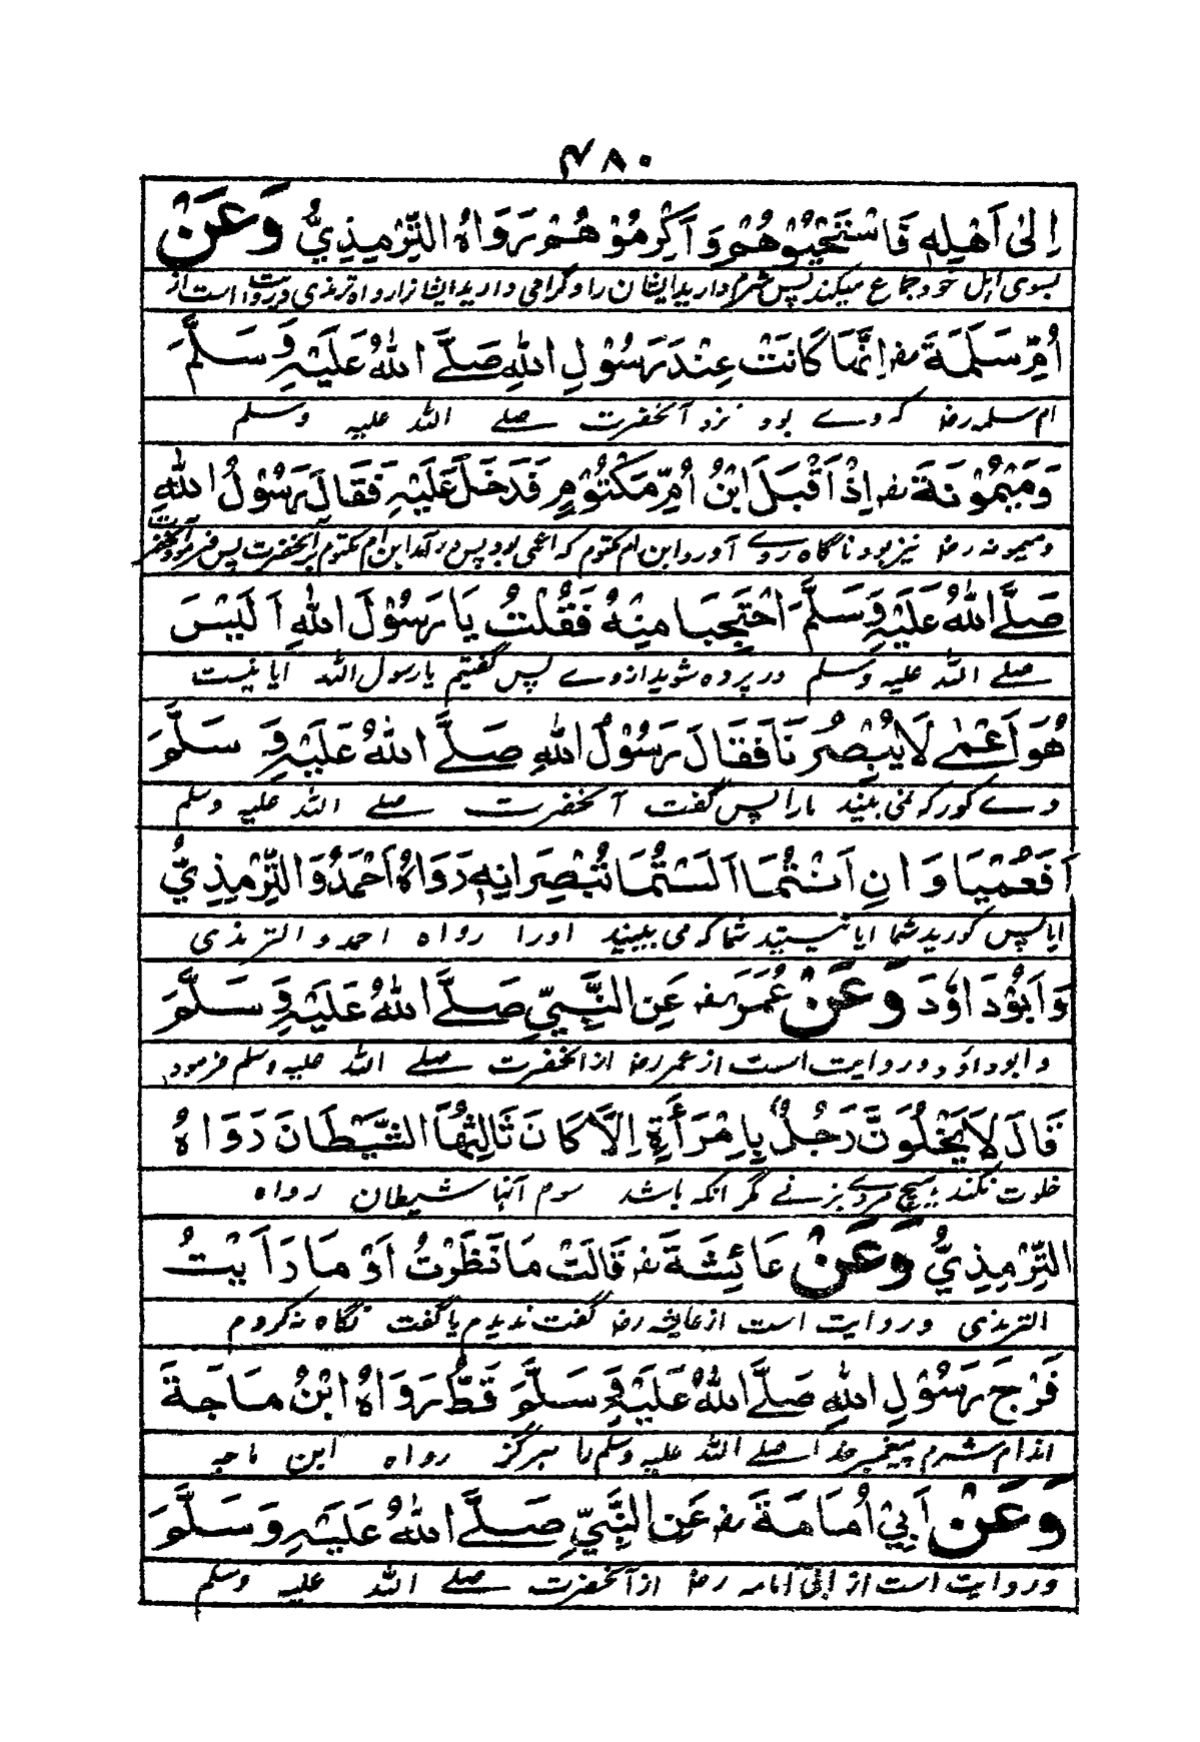 ۴۸۰
اِلٰى اَهْلِهٖ فَاسْتَحْيُوْهُمْ وَاَكْرِمُوْهُمْ رَوَاهُ التِّرْمِذِيُّ وَعَنْ
بسوی اہل خود جماع میکند پس شرم دارید ایشان را و گرامی دارید ایشانرا رواه ترمذی و روایت است از
اُمِّ سَلَمَةَ رض اِنَّهَا كَانَتْ عِنْدَ رَسُوْلِ اللهِ صَلَّے اللهُ عَلَيْهِ وَسَلَّمَ
ام سلمہ رض کہ وے بود نزد آنحضرت صلے اللہ علیہ وسلم
وَمَيْمُوْنَةَ رض اِذْ اَقْبَلَ ابْنُ اُمِّ مَكْتُوْمٍ فَدَخَلَ عَلَيْهِ فَقَالَ رَسُوْلُ اللهِ
ومیمونہ رض نیز بود ناگاه روے آورد ابن ام مکتوم کہ اعمی بود پس در آمد ابن ام مکتوم بر آنحضرت پس فرمود آنحضرت
صَلَّے اللهُ عَلَيْهِ وَسَلَّمَ احْتَجِبَا مِنْهُ فَقُلْتُ يَا رَسُوْلَ اللهِ اَلَيْسَ
صلے اللہ علیہ وسلم در پرده شوید از وے پس گفتیم یا رسول اللہ ایا نیست
هُوَ اَعْمٰے لَا يُبْصِرُنَا فَقَالَ رَسُوْلُ اللهِ صَلَّے اللهُ عَلَيْهِ وَ سَلَّمَ
وے کور کہ نمی بیند مارا پس گفت آنحضرت صلے اللہ علیہ وسلم
اَفَعُمْيَا وَانِ اَنْتُمَا اَلَسْتُمَا تُبْصِرَانِهٖ رَوَاهُ اَحْمَدُ وَالتِّرْمِذِيُّ
ایا پس کورید شما ایا نیستید شما کہ می بینید اورا رواه احمد و الترمذی
وَاَبُوْدَاوٗدَ وَعَنْ عُمَرَ رض عَنِ النَّبِيِّ صَلَّے اللهُ عَلَيْهِ وَ سَلَّمَ
و ابو داؤد و روایت است از عمر رض از آنحضرت صلے اللہ علیہ وسلم فرمود
قَالَ لَا يَخْلُوَنَّ رَجُلٌ بِامْرَأَةٍ اِلَّا كَانَ ثَالِثُهَا الشَّيْطَانَ رَوَاهُ
خلوت نکند ہیچ مردے بزنے مگر آنکہ باشد سوم آنہا شیطان رواه
التِّرْمِذِيُّ وَعَنْ عَائِشَةَ رض قَالَتْ مَا نَظَرْتُ اَوْ مَا رَاَيْتُ
الترمذی و روایت است از عایشہ رض گفت ندیدم یا گفت نگاه نکردم
فَرْجَ رَسُوْلِ اللهِ صَلَّے اللهُ عَلَيْهِ وَ سَلَّمَ قَطُّ رَوَاهُ ابْنُ مَاجَةَ
اندام شرم پیغمبر خدا صلے اللہ علیہ وسلم را ہرگز رواه ابن ماجہ
وَعَنْ اَبِيْ اُمَامَةَ رض عَنِ النَّبِيِّ صَلَّے اللهُ عَلَيْهِ وَسَلَّمَ
و روایت است از ابی امامہ رض از آنحضرت صلے اللہ علیہ وسلم